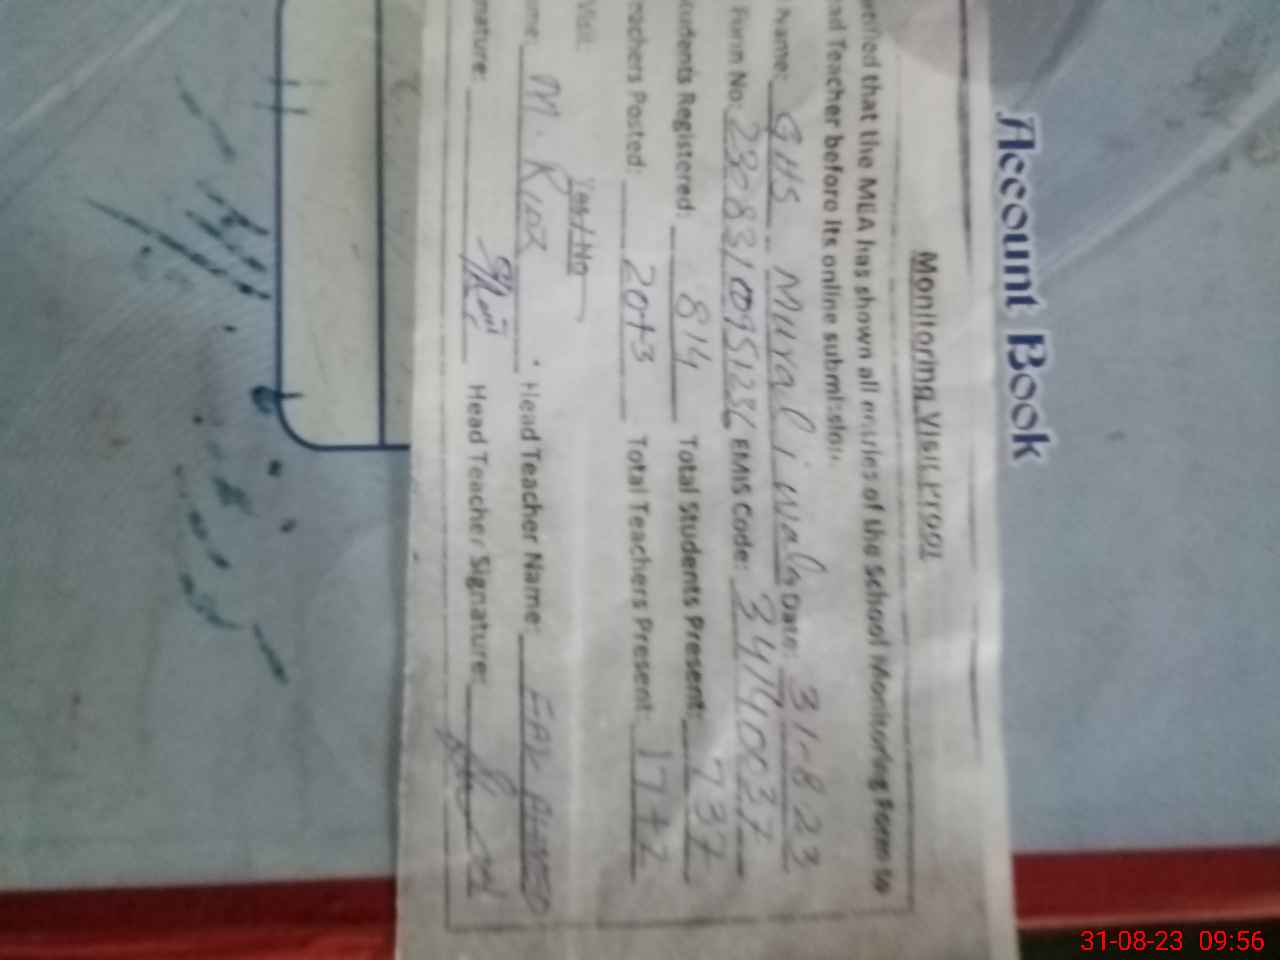 Account Book
Monitoring Visit Proof
that the MEA has shown all entries of the School Monitoring Form to
Teacher before its online submission.
Name: GHS Murali wala Date: 31-8-23
Form No: EMIS Code: 341410037
Students Registered: 814 Total Students Present: 737
Teachers Posted: 20+3 Total Teachers Present: 17+2
Visit: Yes/No
M. Riaz Head Teacher Name: AHMED
Head Teacher Signature:
31-08-23 09:56